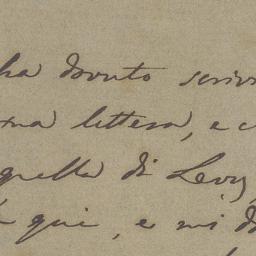 ha dovuto scriv
ma lettera, a c
quella di Levy
qui, e mi d